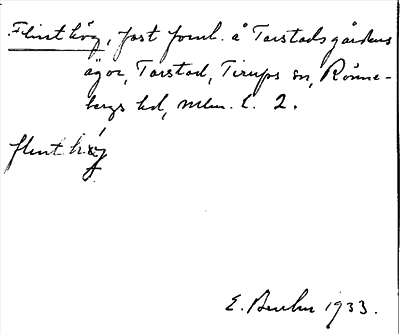 Flinthög, fast fornl. å Tarstadsgårdens
ägor, Tarstad, Tirups sn, Rönne-
bergs hd, Mlm. l. 2.
flint hög
E. 1933.